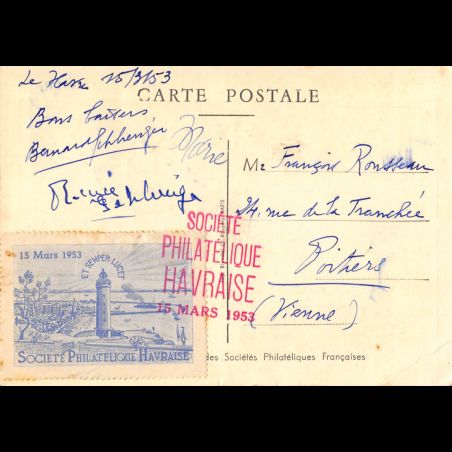 Le Havre 15/3/53
CARTE POSTALE
Bons baisers
Bernard
Renée
Mr François Rousseau
24, rue de la Tranchée
Poitiers
(Vienne)
SOCIÉTÉ
PHILATÉLIQUE
HAVRAISE
15 MARS 1953
15 Mars 1953
ET SEMPER LUCET
SOCIÉTÉ PHILATÉLIQUE HAVRAISE
des Sociétés Philatéliques Françaises